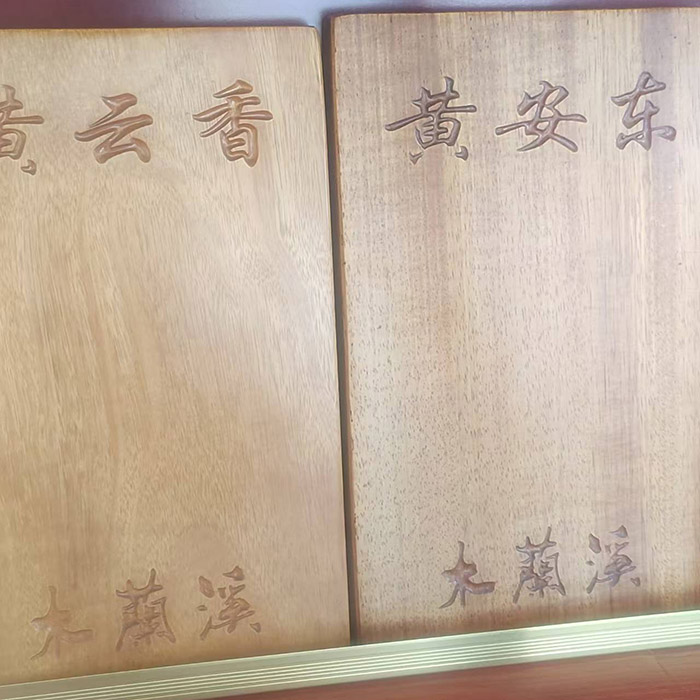 黄云香
木蘭溪
黄安东
木蘭溪